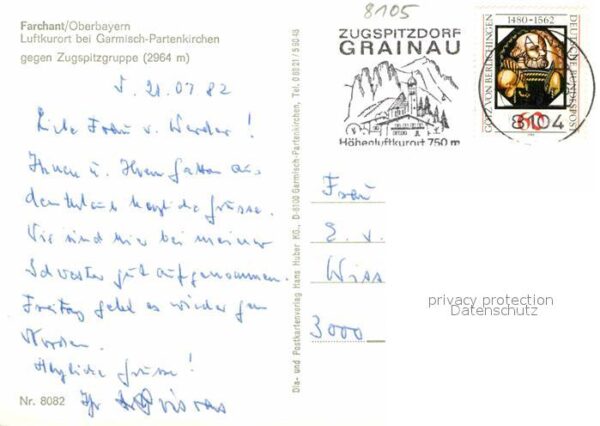 Farchant/Oberbayern
Luftkurort bei Garmisch-Partenkirchen
gegen Zugspitzgruppe (2964 m)
21.07.82
Liebe Frau v. Werder!
Ihnen u. Ihrem Gatten aus
dem Urlaub herzliche Grüsse.
Wir sind hier bei meiner
Schwester gut aufgenommen.
Freitag geht es wieder gen
Norden.
Herzliche Grüsse!
Ihr
Nr. 8082
Dia- und Postkartenverlag Hans Huber KG., D-8100 Garmisch-Partenkirchen, Tel. 08821/
8105
ZUGSPITZDORF
GRAINAU
Höhenluftkurort 750 m
1480-1562
GÖTZ VON BERLICHINGEN
DEUTSCHE BUNDESPOST
60
8104
Frau
v.
3000
privacy protection
Datenschutz